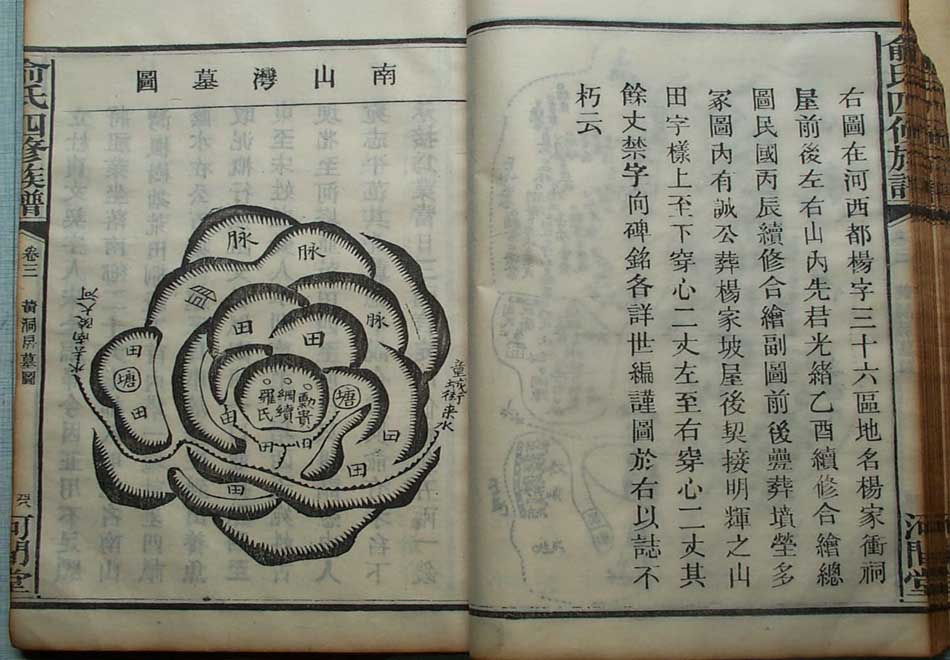 俞氏四修族譜
河間堂
右圖在河西都楊字三十六區地名楊家衝祠
屋前後左右山內先君光緒乙酉續修合繪總
圖民國丙辰續修合繪副圖前後疊葬墳塋多
冢圖內有誠公葬楊家坡屋後契接明輝之山
田字樣上至下穿心二丈左至右穿心二丈其
餘丈禁字向碑銘各詳世編謹圖於右以誌不
朽云
南山灣墓圖
脈
脈
脈
田
田
田
塘
田
塘
動貴
綱續
羅氏
田
田
田
田
田
童城街來水
水去南陵大河
俞氏四修族譜
卷三
黃洞屏墓圖
河間堂